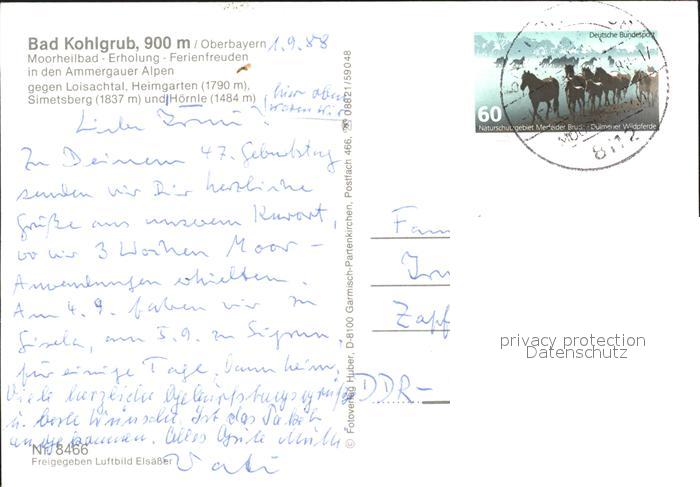 Bad Kohlgrub, 900 m / Oberbayern 1.9.88
Moorheilbad - Erholung - Ferienfreuden
in den Ammergauer Alpen
gegen Loisachtal, Heimgarten (1790 m),
Simetsberg (1837 m) und Hörnle (1484 m)
hier oben
waren wir
Zu Deinem 47. Geburtstag
senden wir Dir herzliche
Grüße aus unserem Kurort,
wo wir 3 Wochen Moor-
Anwendungen erhielten.
Am 4.9. fahren wir zu
Gisela, am 5.9. zu
für einige Tage, dann heim.
Viele herzliche Geburtstagsgrüße
u. beste Wünsche. Ist das Paket
angekommen. Alles Gute
Vati
Nr. 8466
Freigegeben Luftbild Elsäßer
© Fotoverlag Huber, D-8100 Garmisch-Partenkirchen, Postfach 466, ☎ 08821/59048
Deutsche Bundespost
60
Naturschutzgebiet Merfelder Bruch · Dülmener Wildpferde
8112
Fam
Zapf
DDR-
privacy protection
Datenschutz